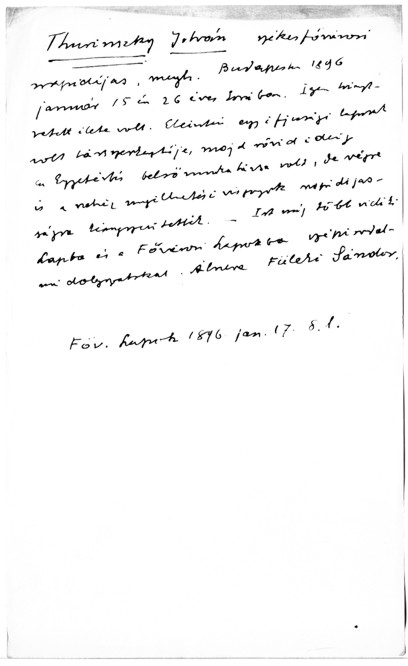 Thurinszky István székesfővárosi
napidíjas, megh. Budapesten 1896
január 15 én 26 éves korában. Igen hányt-
vetett élete volt. Eleintén egy ifjusági lapnak
volt társszerkesztője, majd rövid ideig
az Egyetértés belső munkatársa volt, de végre
is a nehéz megélhetési viszonyok napidíjas-
ságra kényszerítették. – Irt még több vidéki
Lapba és a Fővárosi Lapokba szépirodal-
mi dolgozatokat. Álneve Füleki Sándor.
Föv. Lapok 1896 jan. 17. 8. l.